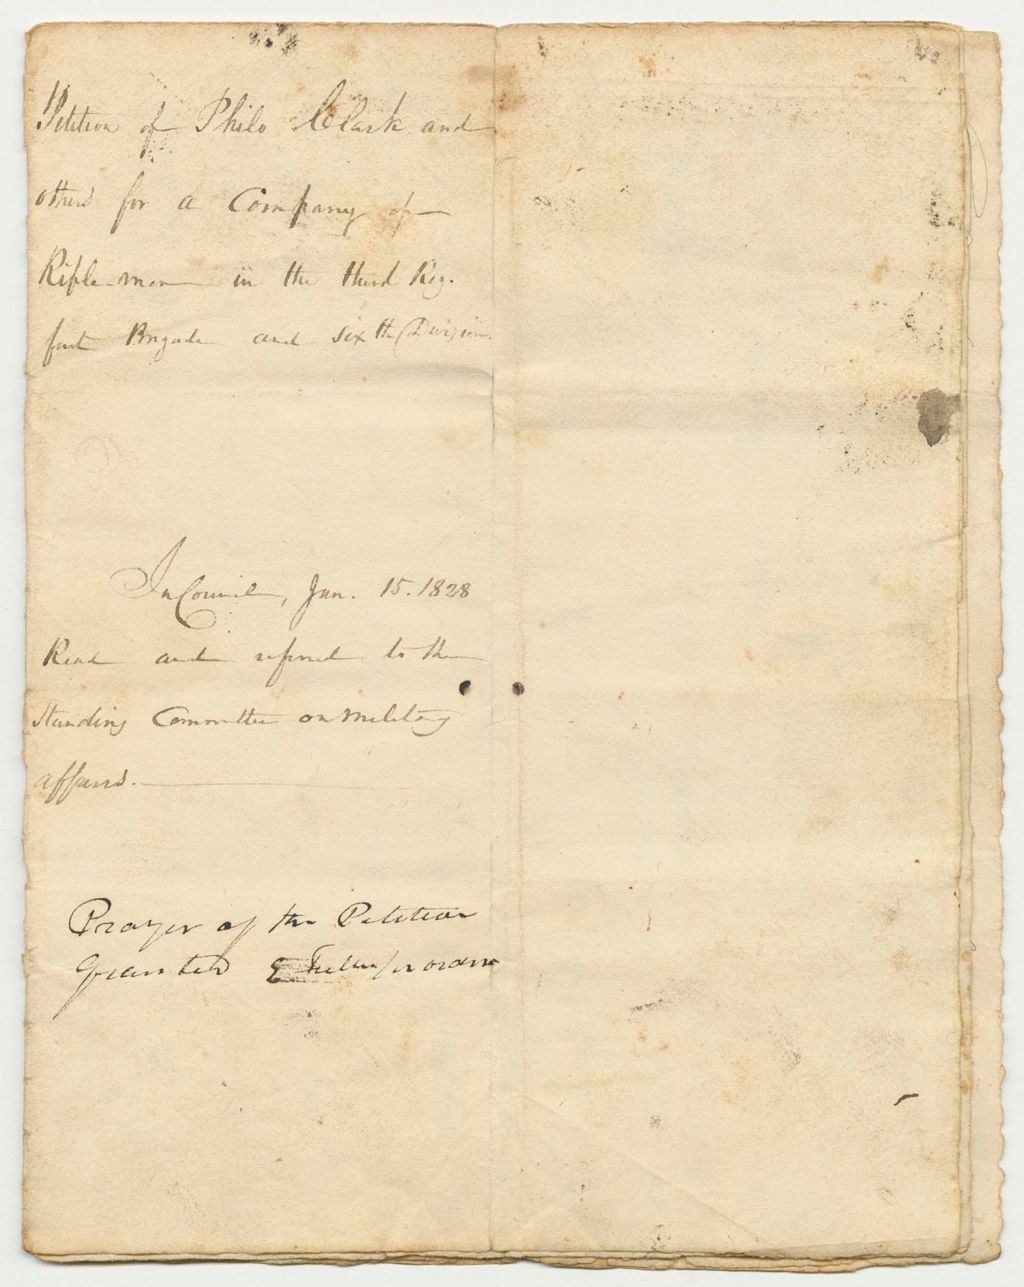 Petition of Philo Clark and
others for a Company of
Riflemen in the third Reg.
first Brigade and sixth Division.
In Council, Jan. 15. 1828
Read and refered to the
Standing Committee on Military
affairs.
Prayer of the Petition
Granted